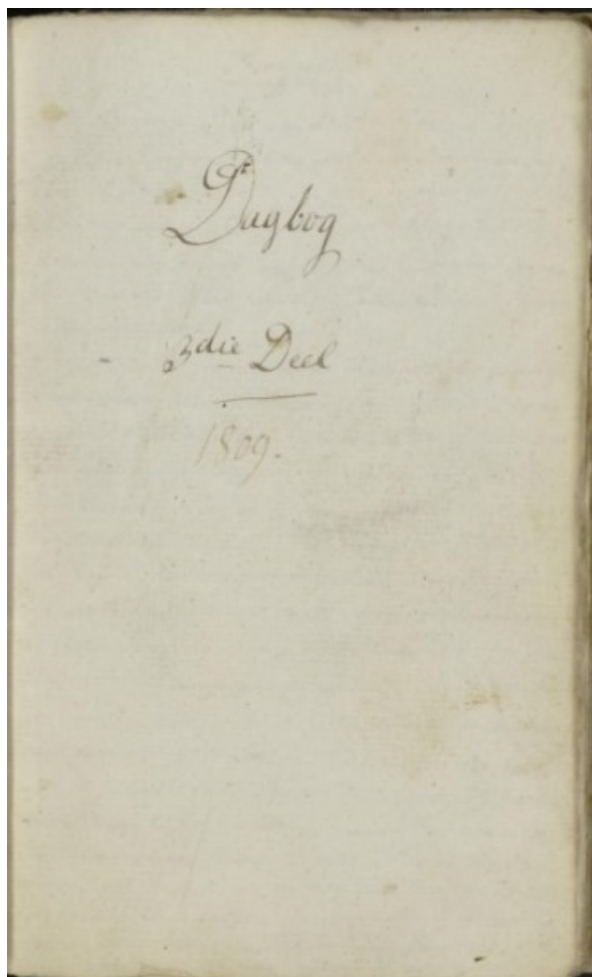 Dagbog
3die Deel
1809.